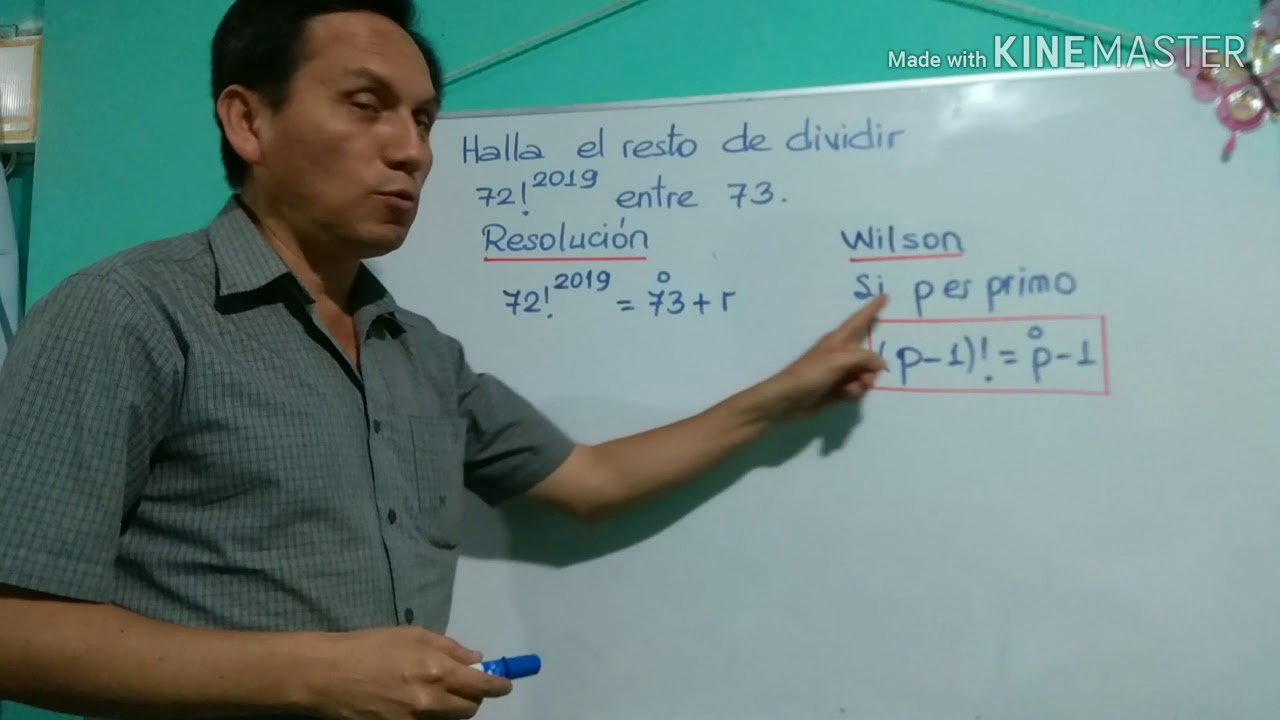 Made with KINEMASTER
Halla el resto de dividir
72!²⁰¹⁹ entre 73.
Resolución
72!²⁰¹⁹ = 73̊ + r
Wilson
Si p es primo
(p-1)! = p̊-1